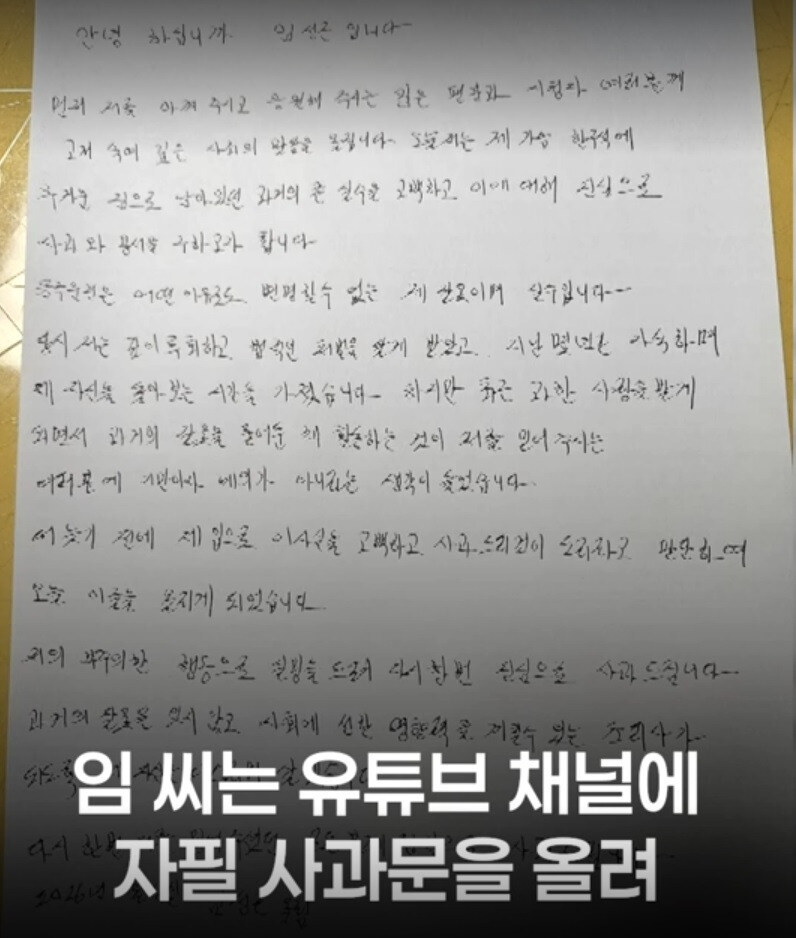 안녕 하십니까. 임성근 입니다.
먼저 저를 아껴 주시고 응원해 주시는 많은 팬분과 시청자 여러분께
고개 숙여 깊은 사죄의 말씀을 올립니다. 오늘 저는 제 가슴 한구석에
무거운 짐으로 남아있던 과거의 큰 실수를 고백하고 이에 대해 진심으로
사과와 용서를 구하고자 합니다.
음주운전은 어떤 이유로도 변명할수 없는 제 잘못이며 실수입니다...
당시 저는 깊이 후회하고, 법적인 처벌을 받게 받았고, 지난 몇년간 자숙하며
제 자신을 돌아보는 시간을 가졌습니다. 하지만 최근 과한 사랑을 받게
되면서 과거의 잘못을 묻어둔 채 활동하는 것이 저를 믿어 주시는
여러분에 기만이자 예의가 아니라는 생각이 들었습니다.
더 늦기 전에 제 입으로 이사실을 고백하고 사과드리는것이 도리라고 판단하여
오늘 이글을 올리게 되었습니다.
저의 부주의한 행동으로 실망을 드려 다시한번 진심으로 사과드립니다.
과거의 잘못을 잊지 않고, 사회에 선한 영향력을 끼칠수 있는 조리사가
되도록
다시 한번
2026년
임 씨는 유튜브 채널에
자필 사과문을 올려